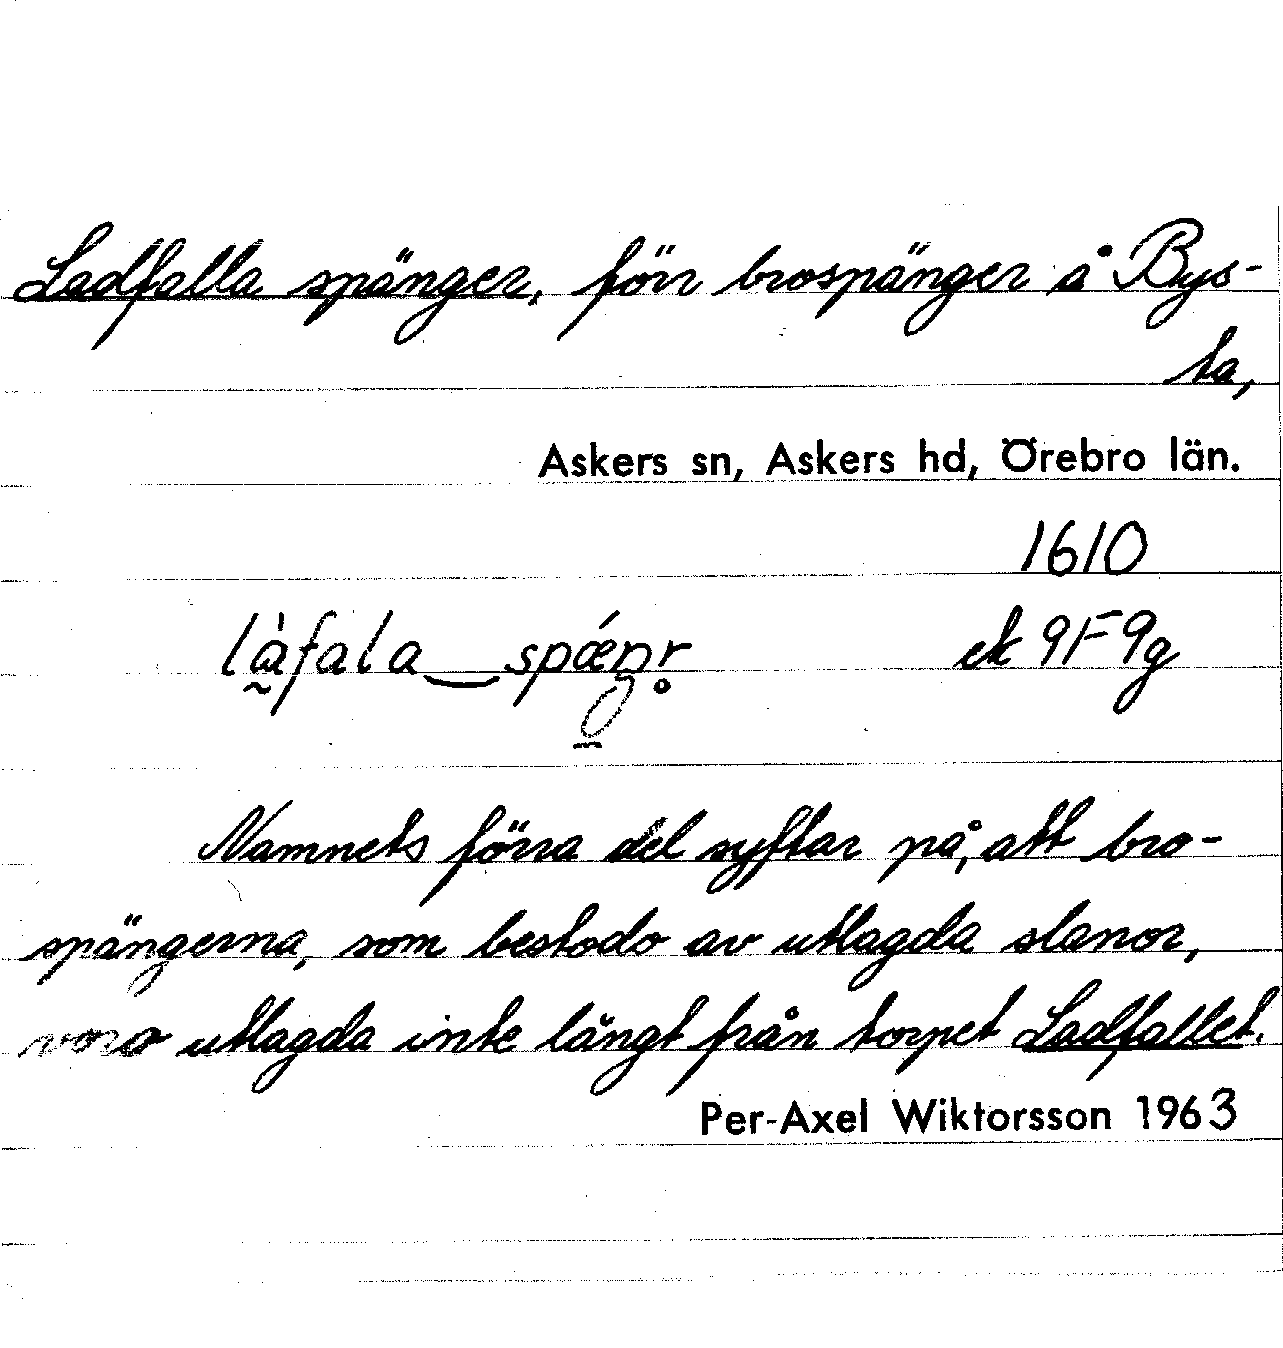 Ladfalla spänger, förr brospänger å Bys-
ta,
Askers sn, Askers hd, Örebro län.
1610
ek 9F9g
Namnets förra del syftar på, att bro-
spängerna, som bestodo av utlagda slanor,
voro utlagda inte långt från torpet Ladfallet.
Per-Axel Wiktorsson 1963